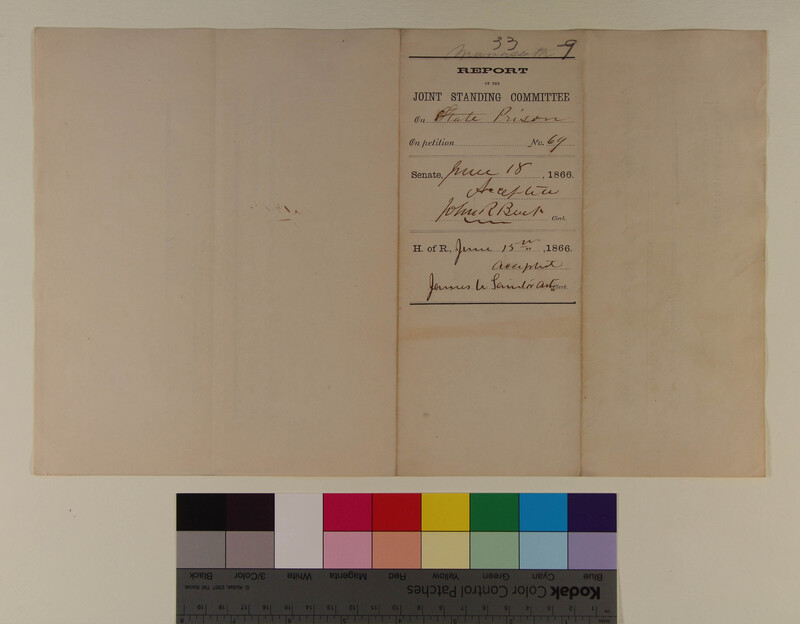 33
9
REPORT
OF THE
JOINT STANDING COMMITTEE
On State Prison
On petition No. 69
Senate, June 18, 1866.
Accepted
John R Buck
Clerk.
H. of R., June 15th, 1866.
Accepted
James U Asst Clerk.
Blue Cyan Green Yellow Red Magenta White 3/Color Black
Kodak Color Control Patches